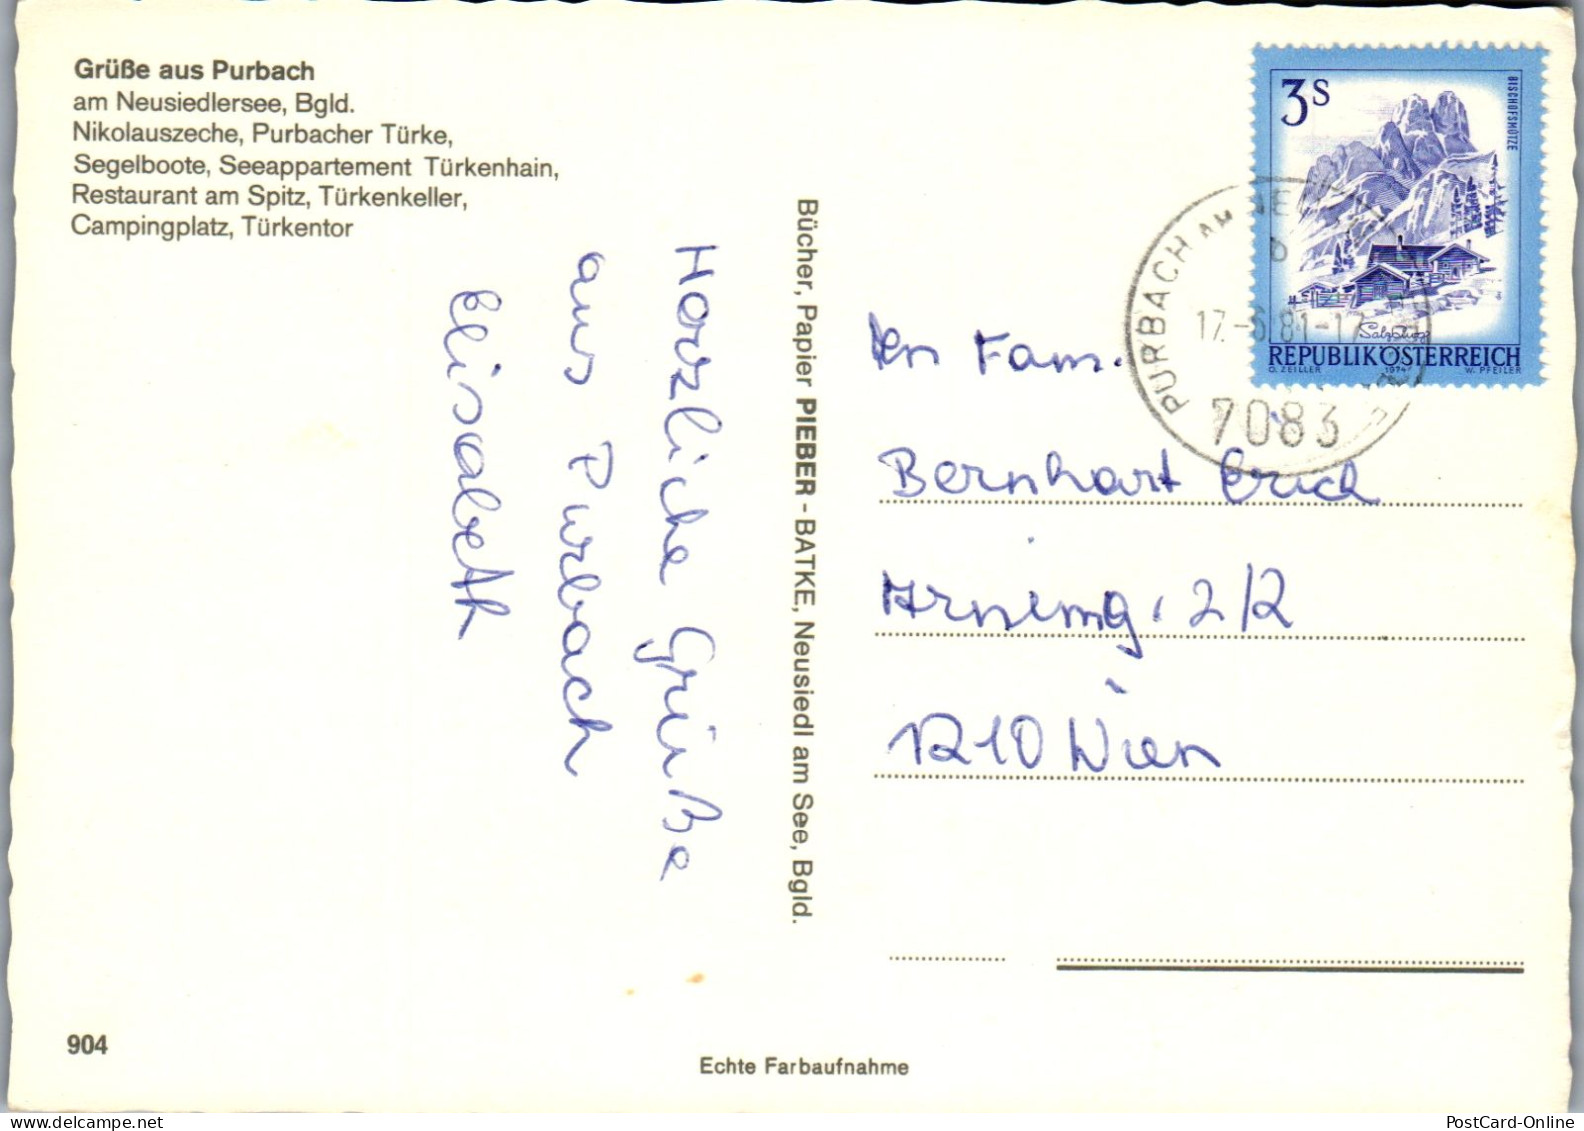 Grüße aus Purbach
am Neusiedlersee, Bgld.
Nikolauszeche, Purbacher Türke,
Segelboote, Seeappartement Türkenhain,
Restaurant am Spitz, Türkenkeller,
Campingplatz, Türkentor
Herzliche Grüße
aus Purbach
Elisabeth
Bücher, Papier PIEBER - BATKE, Neusiedl am See, Bgld.
3S
BISCHOFSMÜTZE
Salzburg
REPUBLIK ÖSTERREICH
O. ZEILLER 1974 W. PFEILER
PURBACH AM
17.-6.81-17
7083
Fam.
Bernhart Erich
2/2
1210 Wien
904
Echte Farbaufnahme
PostCard-Online
www.delcampe.net